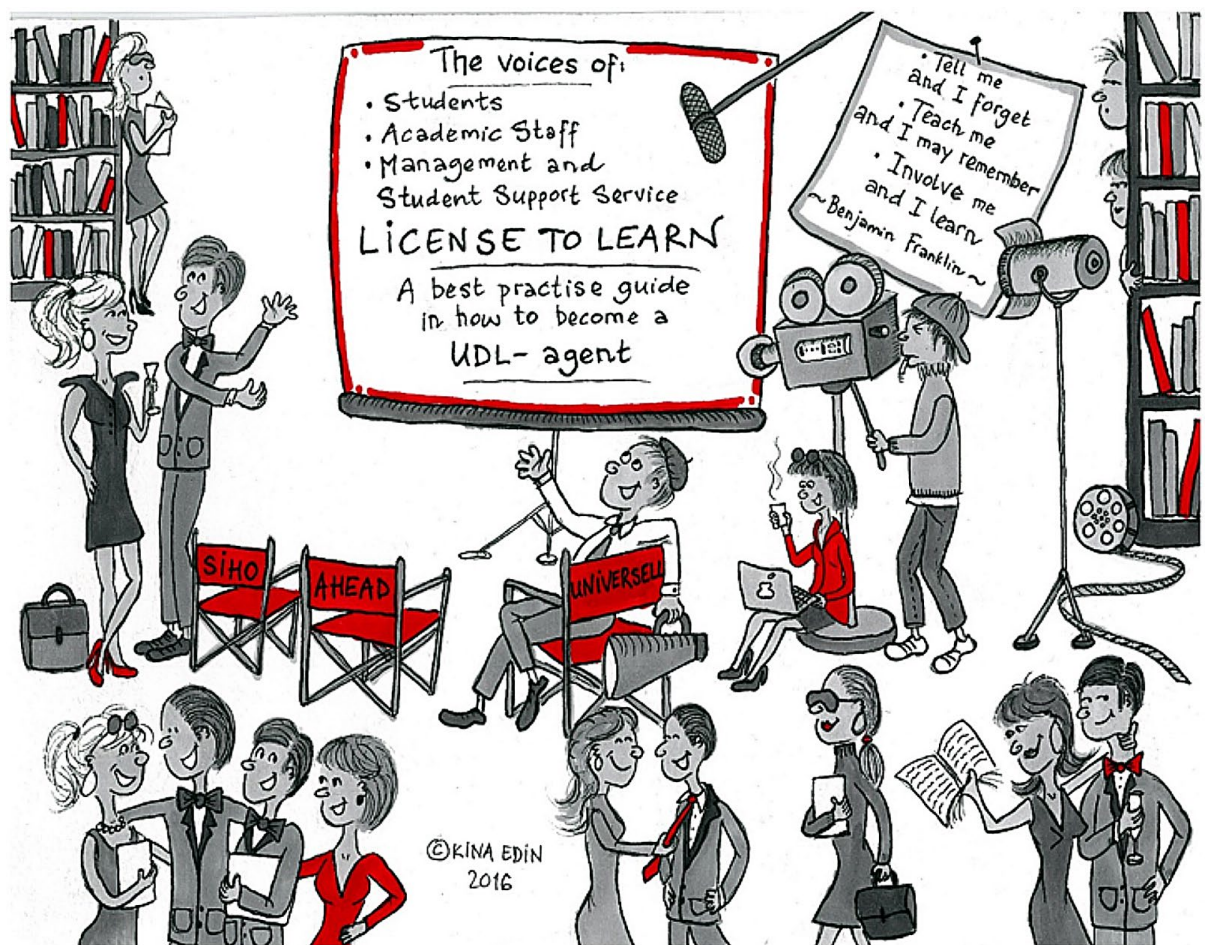 The voices of:
• Students
• Academic Staff
• Management and
Student Support Service
LiCENSE TO LEARN
A best practise guide
in how to become a
UDL- agent
• Tell me
and I forget
• Teach me
and I may remember
• Involve me
and I learn
~ Benjamin Franklin ~
SiHO
AHEAD
UNiVERSELL
© KINA EDIN
2016